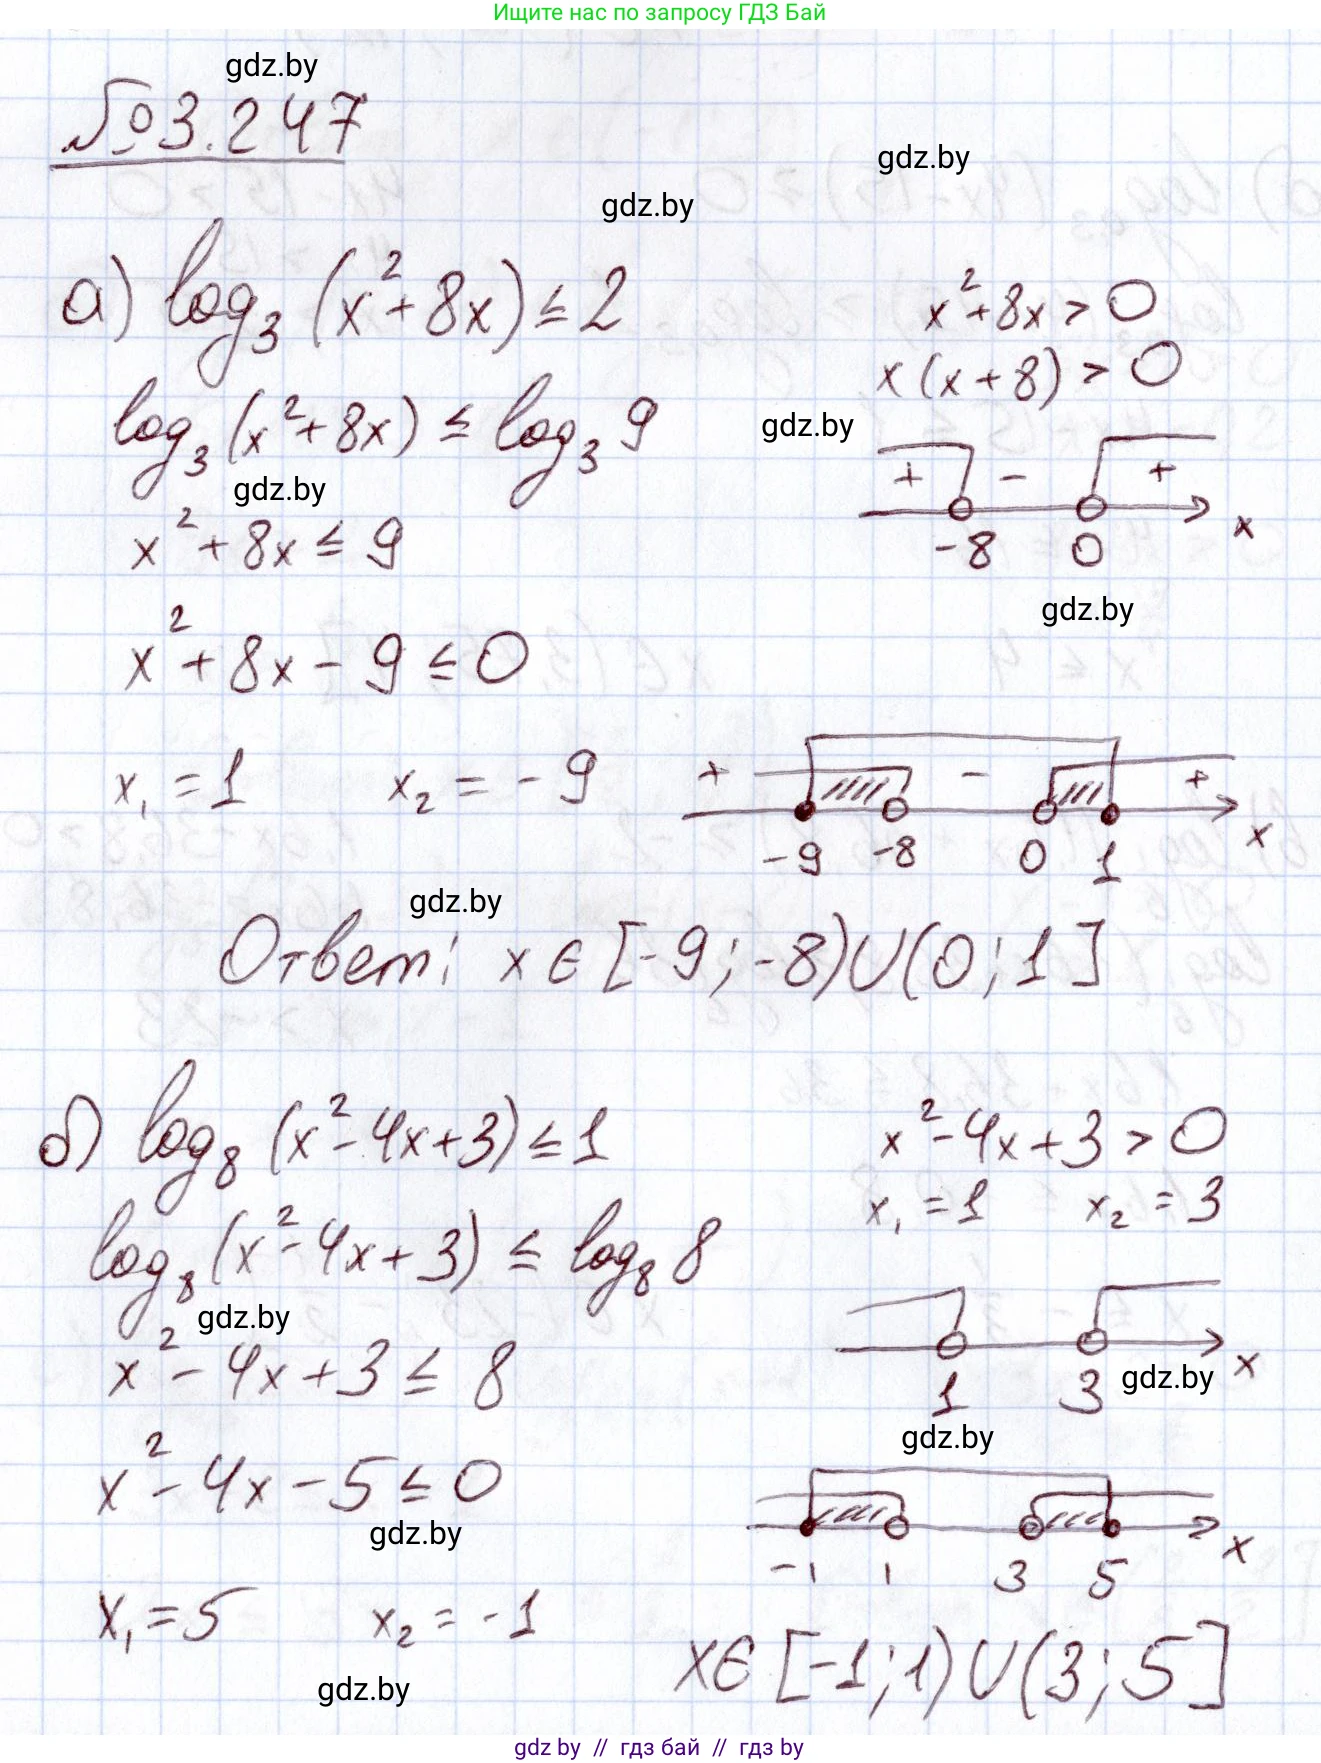 Ищите нас по запросу ГДЗ Бай
gdz.by
№3.247
gdz.by
gdz.by
а) log₃ (x²+8x) ≤ 2
x²+8x > 0
log₃ (x²+8x) ≤ log₃ 9
x (x+8) > 0
gdz.by
gdz.by
+ - +
-8 0 x
x²+8x ≤ 9
gdz.by
x²+8x-9 ≤ 0
x₁ = 1 x₂ = -9
+ - +
-9 -8 0 1 x
gdz.by
Ответ: x ∈ [-9; -8) ∪ (0; 1]
б) log₈ (x²-4x+3) ≤ 1
x²-4x+3 > 0
x₁ = 1 x₂ = 3
log₈ (x²-4x+3) ≤ log₈ 8
gdz.by
x²-4x+3 ≤ 8
1 3 x
gdz.by
gdz.by
x²-4x-5 ≤ 0
gdz.by
-1 1 3 5 x
x₁ = 5 x₂ = -1
x ∈ [-1; 1) ∪ (3; 5]
gdz.by
gdz by // гдз бай // гдз by